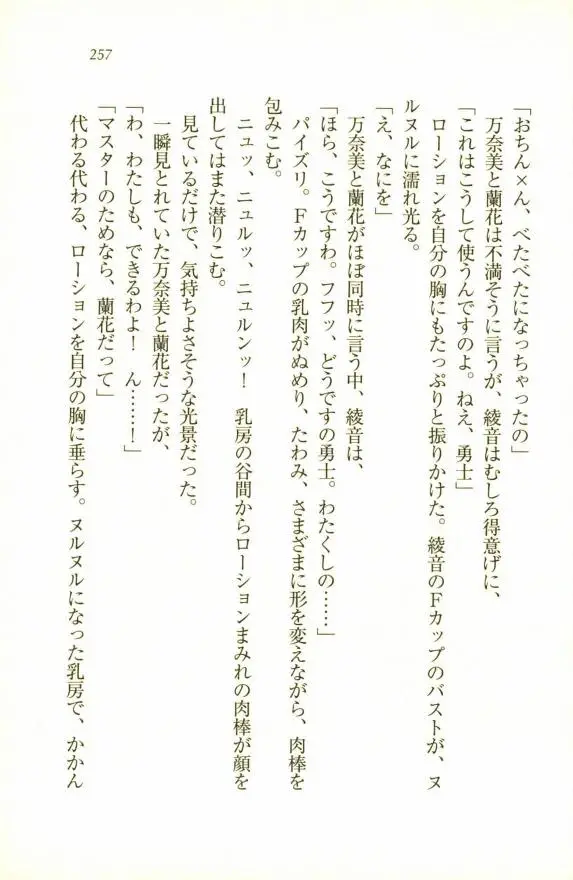 257
「おちん×ん、べたべたになっちゃったの」
万奈美と蘭花は不満そうに言うが、綾音はむしろ得意げに、
「これはこうして使うんですのよ。ねえ、勇士」
ローションを自分の胸にもたっぷりと振りかけた。綾音のFカップのバストが、ヌ
ルヌルに濡れ光る。
「え、なにを」
万奈美と蘭花がほぼ同時に言う中、綾音は、
「ほら、こうですわ。フフッ、どうですの勇士。わたくしの……」
パイズリ。Fカップの乳肉がぬめり、たわみ、さまざまに形を変えながら、肉棒を
包みこむ。
ニュッ、ニュルッ、ニュルンッ!　乳房の谷間からローションまみれの肉棒が顔を
出してはまた潜りこむ。
見ているだけで、気持ちよさそうな光景だった。
一瞬見とれていた万奈美と蘭花だったが、
「わ、わたしも、できるわよ!　ん……!」
「マスターのためなら、蘭花だって」
代わる代わる、ローションを自分の胸に垂らす。ヌルヌルになった乳房で、かかん